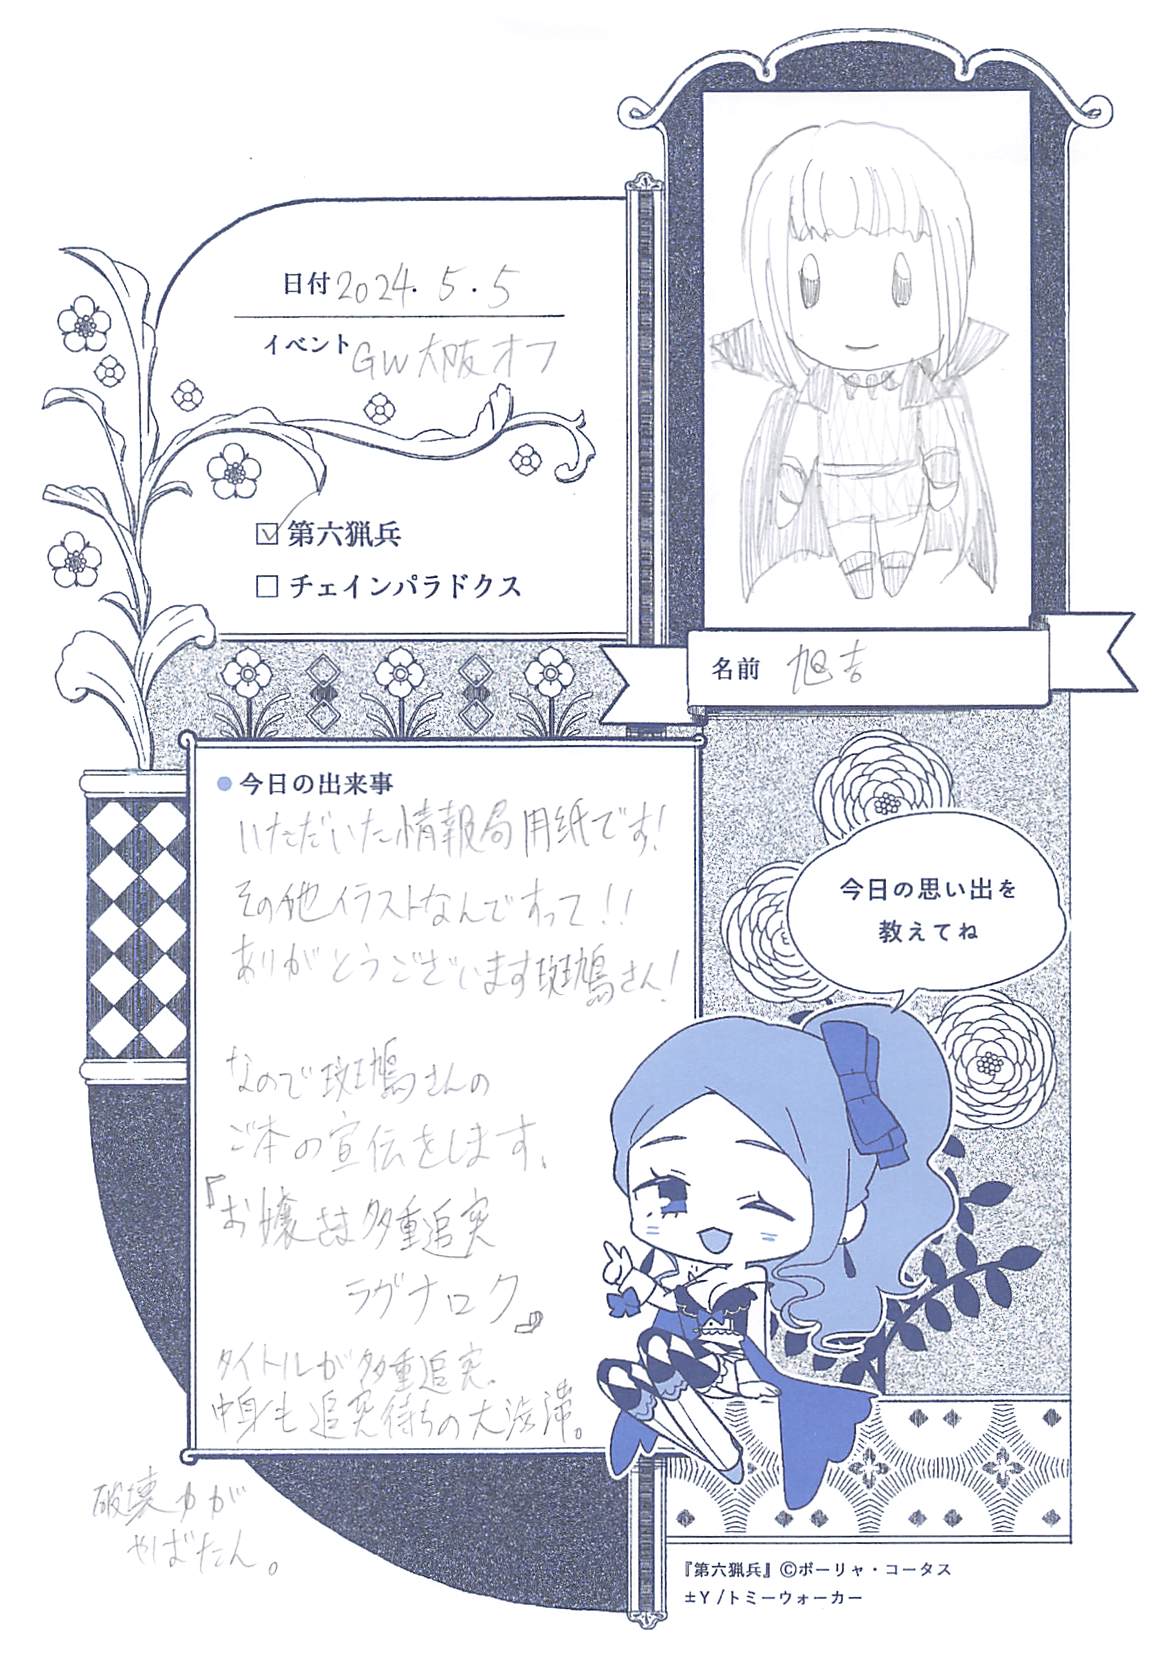 日付 2024.5.5
イベント GW大阪オフ
☑ 第六猟兵
☐ チェインパラドクス
名前 旭吉
● 今日の出来事
いただいた情報局用紙です!
その他イラストなんですって!!
ありがとうございます斑鳩さん!
なので斑鳩さんの
ご本の宣伝をします、
『お嬢さま多重追突
ラグナロク』
タイトルが多重追突、
中身も追突待ちの大渋滞。
破壊力が
やばたん。
今日の思い出を
教えてね
『第六猟兵』©ボーリャ・コータス
±Y/トミーウォーカー